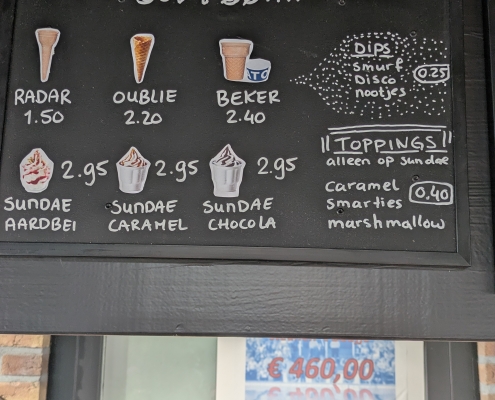 RADAR
1.50
OUBLIE
2.20
BEKER
2.40
DIPS
smurf
DISCO
nootjes
0.25
TOPPINGS
alleen op sundae
caramel
smarties
marshmallow
0.40
2.95
SUNDAE
AARDBEI
2.95
SUNDAE
CARAMEL
2.95
SUNDAE
CHOCOLA
€ 460,00